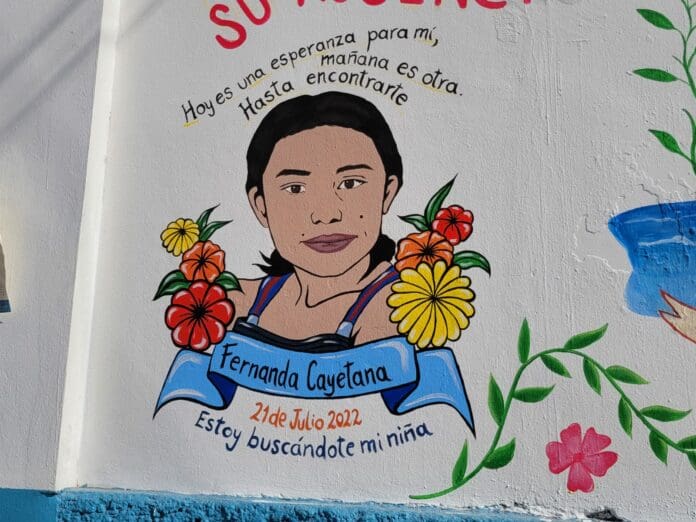 SU
Hoy es una esperanza para mí,
mañana es otra.
Hasta encontrarte
Fernanda Cayetana
21 de Julio 2022
Estoy buscándote mi niña